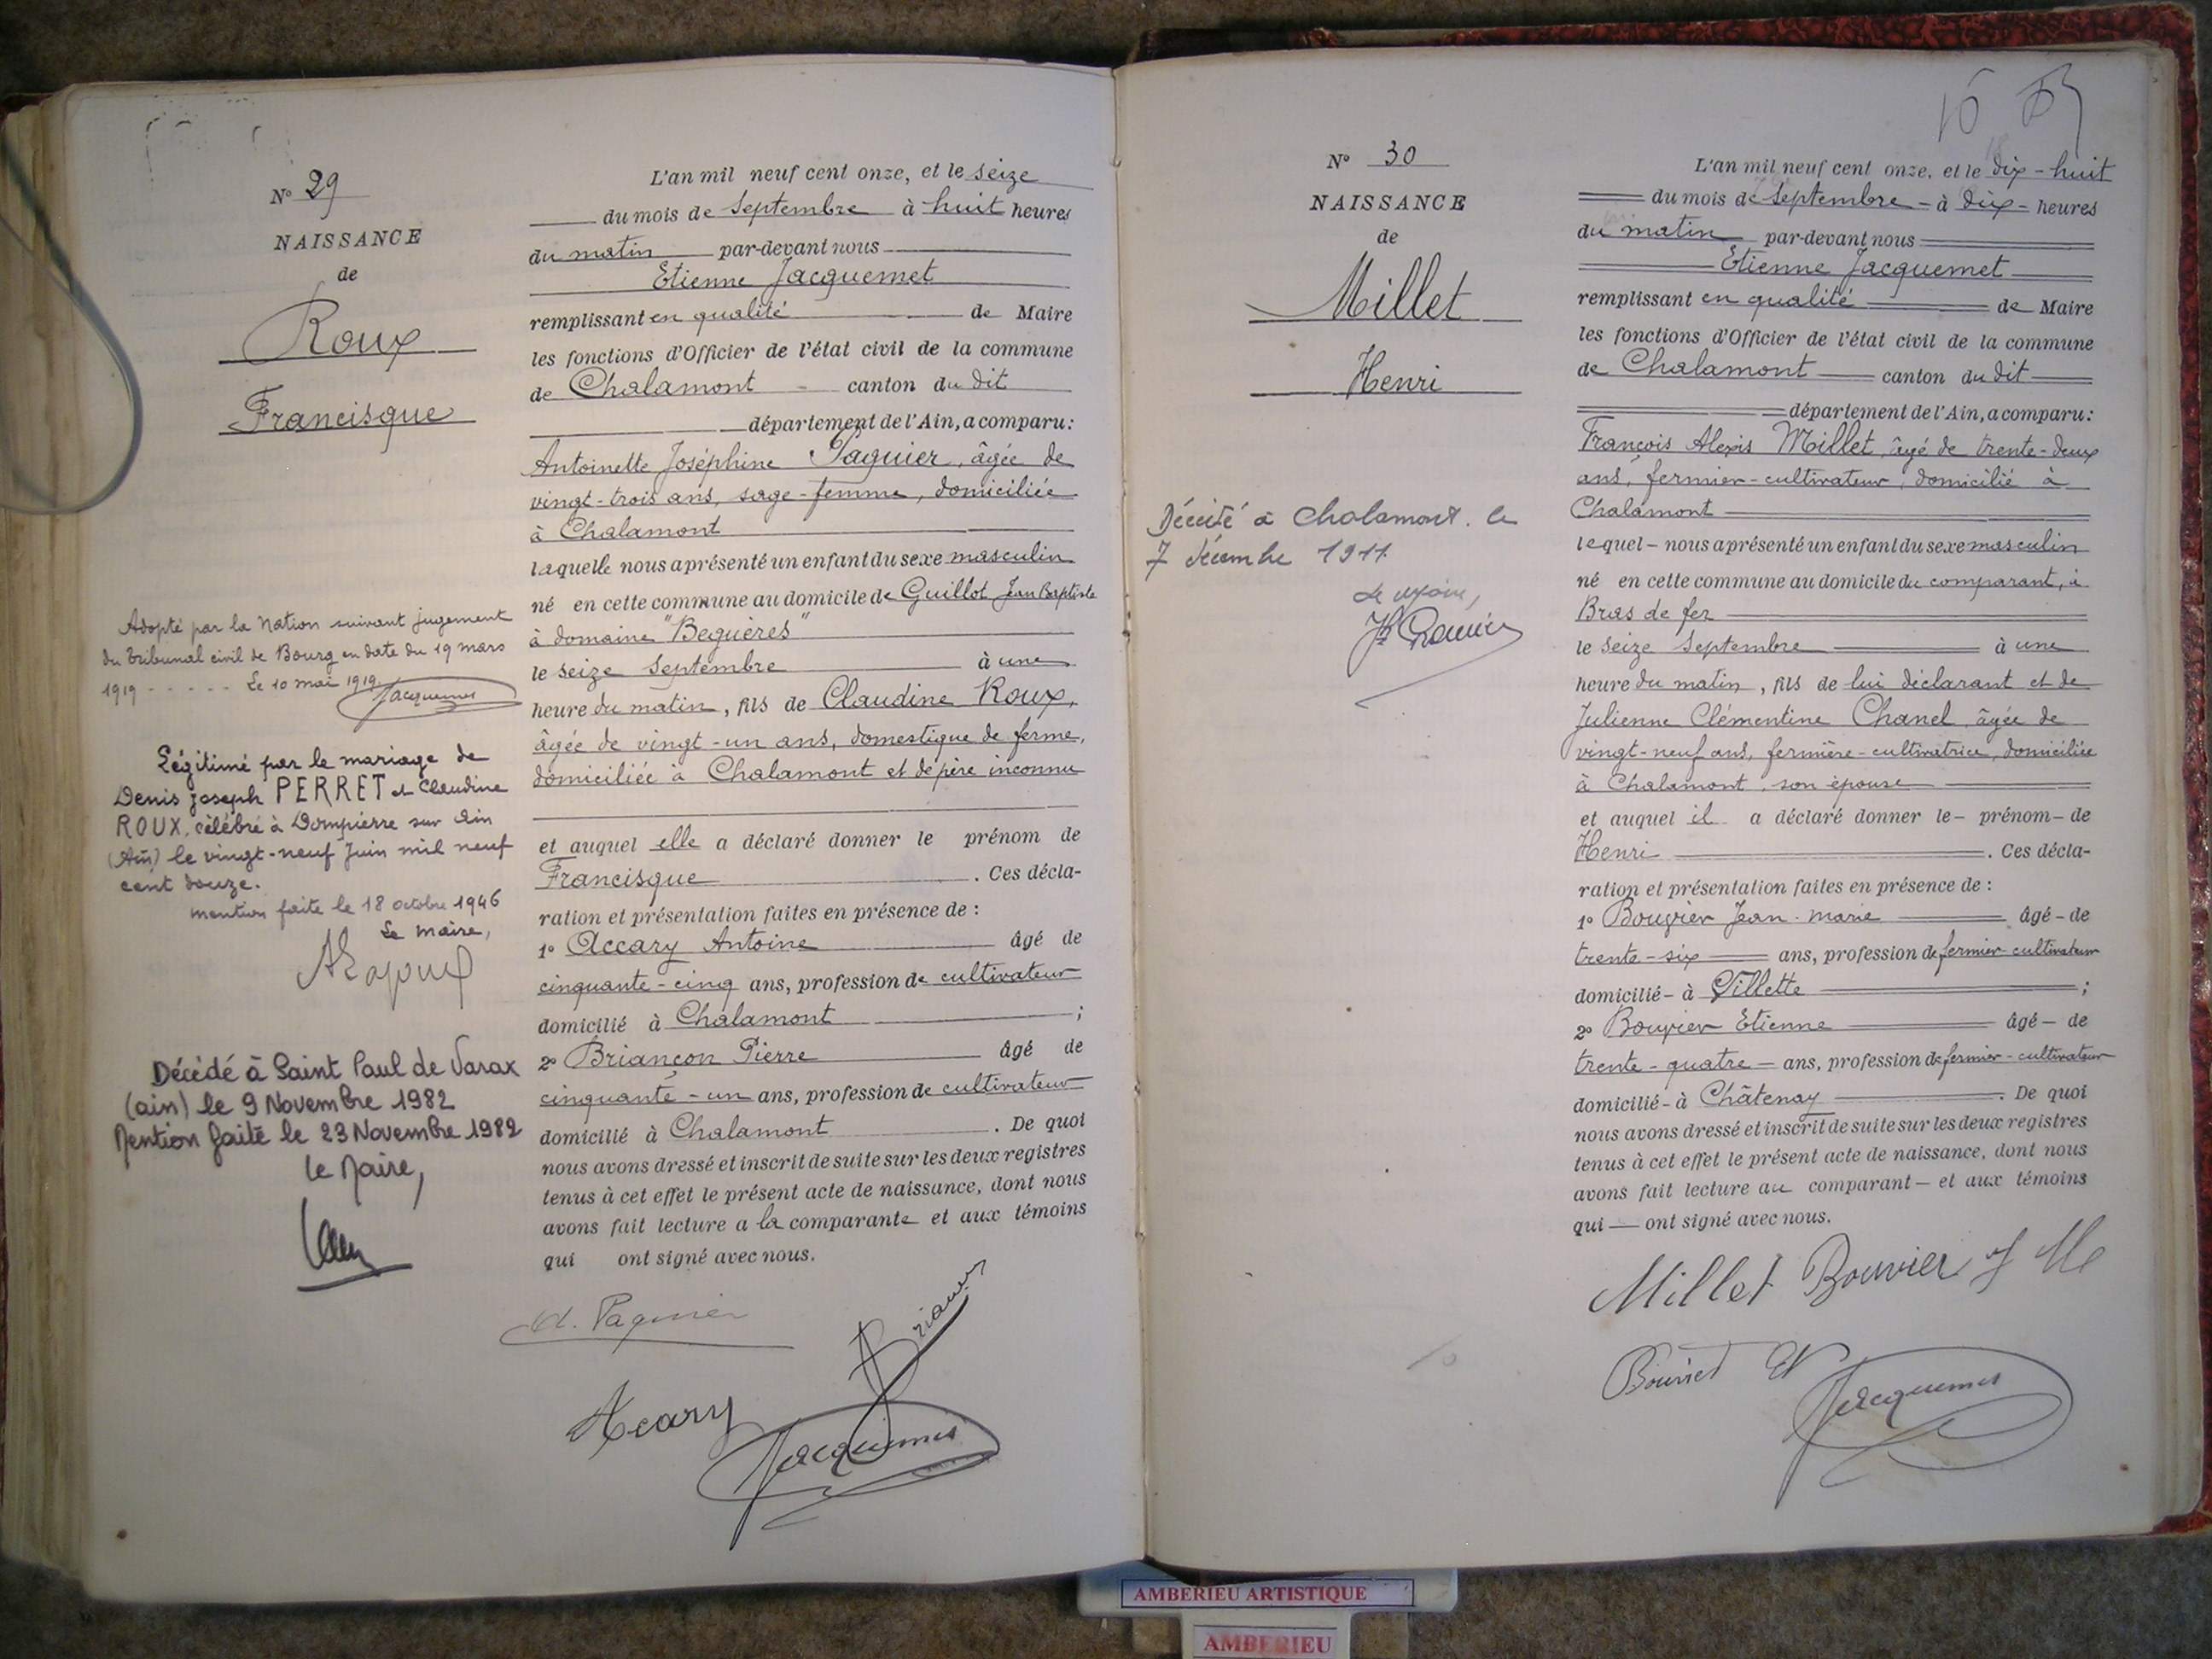 N° 29
NAISSANCE
de
Roux
Francisque
Adopté par la Nation suivant jugement
du Tribunal civil de Bourg en date du 19 mars
1919 - - - - - Le 10 mai 1919.
Jacquemet
Légitimé par le mariage de
Denis Joseph PERRET et Claudine
ROUX, célébré à Dompierre sur Ain
(Ain) le vingt-neuf Juin mil neuf
cent douze.
mention faite le 18 octobre 1946
Le Maire,
Décédé à Saint Paul de Varax
(ain) le 9 Novembre 1982
Mention faite le 23 Novembre 1982
le Maire,
L'an mil neuf cent onze, et le seize
du mois de Septembre à huit heures
du matin par-devant nous
Etienne Jacquemet
remplissant en qualité de Maire
les fonctions d'Officier de l'état civil de la commune
de Chalamont - canton du dit
département de l'Ain, a comparu :
Antoinette Joséphine Paguier, âgée de
vingt-trois ans, sage-femme, domiciliée
à Chalamont
laquelle nous a présenté un enfant du sexe masculin
né en cette commune au domicile de Guillot Jean Baptiste
à domaine "Beguères"
le seize Septembre à une
heure du matin, fils de Claudine Roux,
âgée de vingt-un ans, domestique de ferme,
domiciliée à Chalamont et de père inconnu
et auquel elle a déclaré donner le prénom de
Francisque. Ces décla-
ration et présentation faites en présence de :
1° Accary Antoine âgé de
cinquante-cinq ans, profession de cultivateur
domicilié à Chalamont ;
2° Briançon Pierre âgé de
cinquante-un ans, profession de cultivateur
domicilié à Chalamont. De quoi
nous avons dressé et inscrit de suite sur les deux registres
tenus à cet effet le présent acte de naissance, dont nous
avons fait lecture a la comparante et aux témoins
qui ont signé avec nous.
A. Paguier
Accary
Jacquemet
N° 30
NAISSANCE
de
Millet
Henri
Décédé à Chalamont. le
7 décembre 1911
Le Maire,
L'an mil neuf cent onze, et le dix-huit
du mois de Septembre - à dix - heures
du matin par-devant nous
Etienne Jacquemet
remplissant en qualité de Maire
les fonctions d'Officier de l'état civil de la commune
de Chalamont canton du dit
département de l'Ain, a comparu :
François Alexis Millet, âgé de trente-deux
ans, fermier-cultivateur, domicilié à
Chalamont
lequel - nous a présenté un enfant du sexe masculin
né en cette commune au domicile du comparant, à
Bras de fer
le seize Septembre à une
heure du matin, fils de lui déclarant et de
Julienne Clémentine Chanel âgée de
vingt-neuf ans, fermière-cultivatrice, domiciliée
à Chalamont, son épouse
et auquel il a déclaré donner le - prénom - de
Henri. Ces décla-
ration et présentation faites en présence de :
1° Bouvier Jean-marie âgé - de
trente-six ans, profession de fermier-cultivateur
domicilié - à Villette ;
2° Bouvier Etienne âgé - de
trente-quatre - ans, profession de fermier-cultivateur
domicilié - à Châtenay. De quoi
nous avons dressé et inscrit de suite sur les deux registres
tenus à cet effet le présent acte de naissance, dont nous
avons fait lecture au comparant - et aux témoins
qui - ont signé avec nous.
Millet Bouvier
Jacquemet
AMBERIEU ARTISTIQUE
AMBERIEU